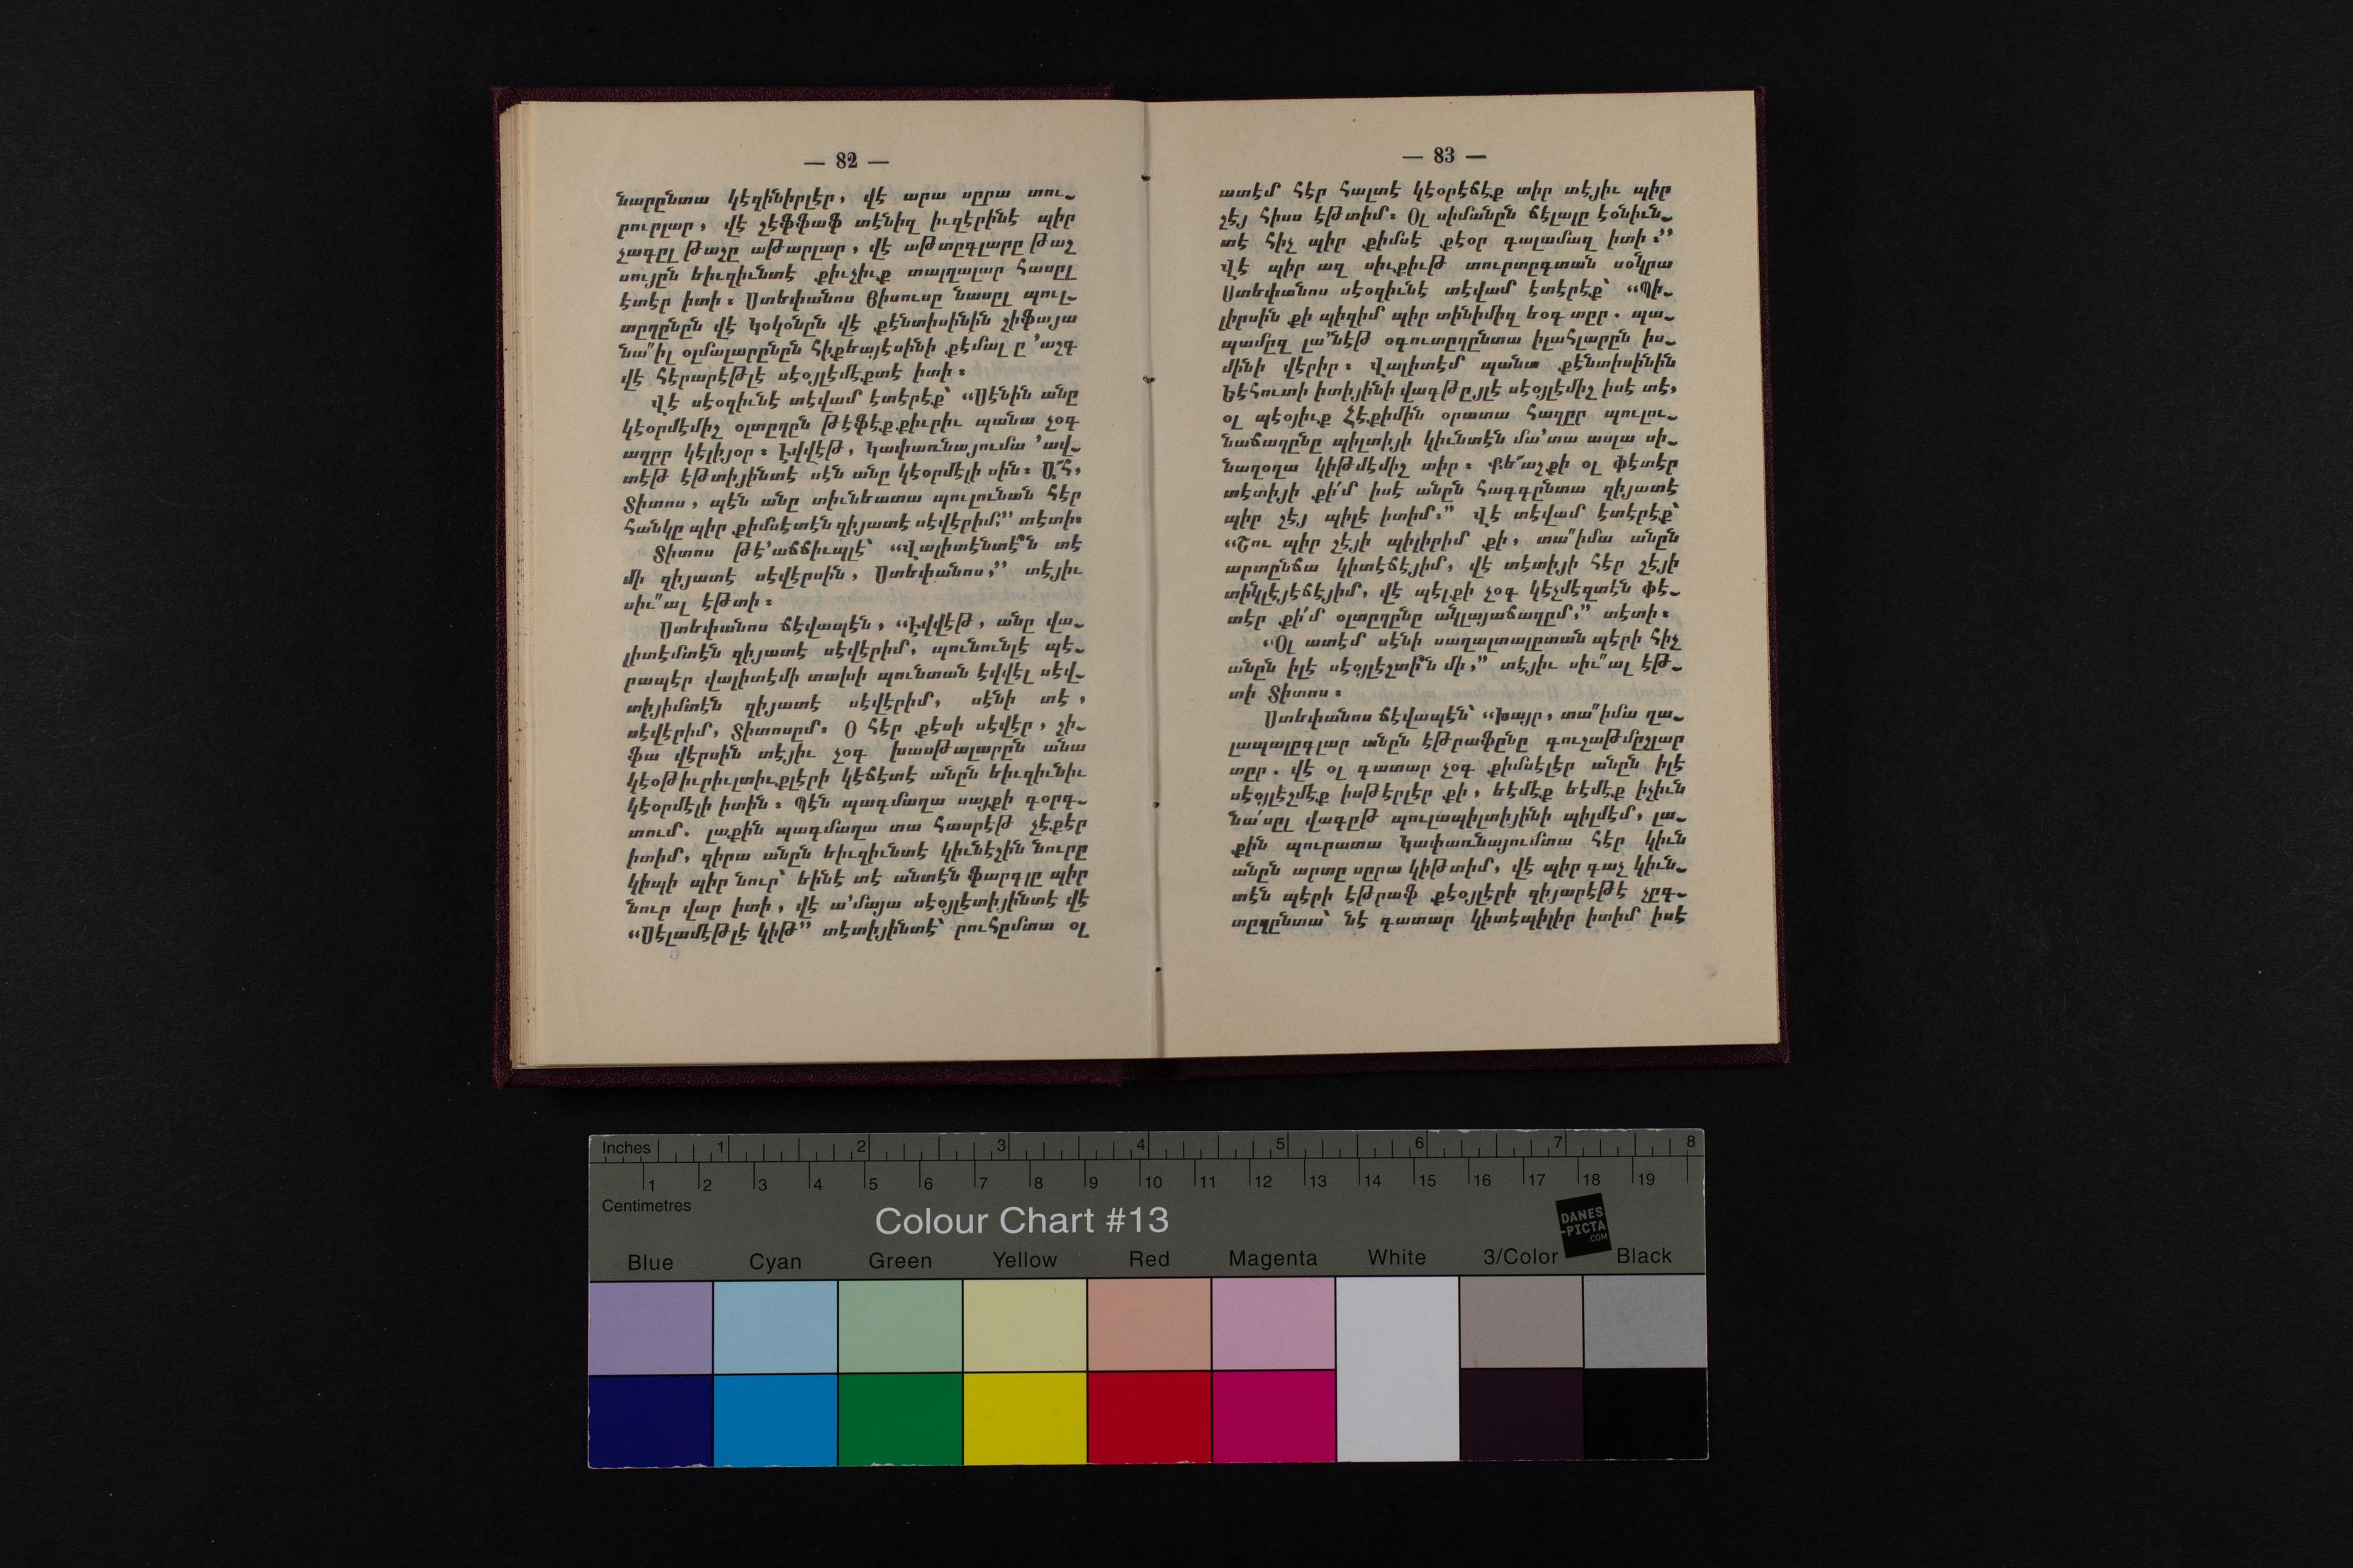 — 82 —
նարընտա կէզինիրլէր, վէ արա սըրա տու-
րուրլար, վէ չէֆֆաֆ տէնիզ իւզէրինէ պիր
չագըլ թաշը աթարլար, վէ աթտըգլարը թաշ
սույըն եիւզիւնտէ քիւչիւք տալղալար հասըլ
էտէր իտի։ Ստեփանոս Յիսուսը նասըլ պուլ-
տըղընըն վէ Կօկօնըն վէ քէնտիսինին շիֆայա
նա՞իլ օլմալարընըն հիքեայէսինի քէմալ ը ՚աշգ
վէ հէրարէթլէ սէօյլէմէքտէ իտի։
Վէ սէօզիւնէ տէվամ էտէրէք՝ “Սէնին անը
կէօրմէմիշ օլտըղըն թէֆէքքիւրիւ պանա չօգ
աղըր կէլիյօր։ Էվվէթ, Կափառնայումա ՚ավ-
տէթ էթտիյինտէ սէն անը կէօրմէլի սին։ Ա՜հ,
Տիտոս, պէն անը տիւնեատա պուլունան հէր
հանկը պիր քիմսէտէն զիյատէ սէվէրիմ,” տէտի։
Տիտոս թէ՚աճճիւպլէ՝ “Վալիտէնտէ՞ն տէ
մի զիյատէ սէվէրսին, Ստեփանոս,” տէյիւ
սիւ՞ալ էթտի։
Ստեփանոս ճէվապէն, “Էվվէթ, անը վա-
լիտէմտէն զիյատէ սէվէրիմ, պունունլէ պէ-
րապէր վալիտէմի տախի պունտան էվվէլ սէվ-
տիյիմտէն զիյատէ սէվէրիմ, սէնի տէ,
սէվէրիմ, Տիտոսըմ։ Օ հէր քէսի սէվէր, շի-
ֆա վէրսին տէյիւ չօգ խասթալարըն անա
կէօթիւրիւլտիւքլէրի կէճէտէ անըն եիւզիւնիւ
կէօրմէլի իտին։ Պէն պագմաղա սայքի գօրգ-
տում. լաքին պագմաղա տա հասրէթ չէքէր
իտիմ, զիրա անըն եիւզիւնտէ կիւնէշին նուրը
կիպի պիր նուր՝ եինէ տէ անտէն ֆարգլը պիր
նուր վար իտի, վէ ա՚մայա սէօյլէտիյինտէ վէ
“Սէլամէթլէ կիթ” տէտիյինտէ՝ րուհըմտա օլ
— 83 —
ատէմ հէր հալտէ կէօրէճէք տիր տէյիւ պիր
շէյ հիսս էթտիմ։ Օլ սիմանըն ճէլալը էօնիւն-
տէ հիչ պիր քիմսէ քէօր գալամազ իտի։”
Վէ պիր ազ սիւքիւթ տուրտըգտան սօնրա
Ստեփանոս սէօզիւնէ տէվամ էտէրէք՝ “Պի-
լիրսին քի պիզիմ պիր տինիմիզ եօգ տըր. պա-
պամըզ լա՚նէթ օգուտըղընտա իլահլարըն իս-
մինի վէրիր։ Վալիտէմ պանա քէնտիսինին
Եէհուտի իտիյինի վագթըյլէ սէօյլէմիշ իսէ տէ,
օլ պէօյիւք Հէքիմին օրատա հաղըր պուլու-
նաճաղընը պիլտիյի կիւնտէն մա՚տա ասլա սի-
նաղօղա կիթմէմիշ տիր։ Քե՜աշքի օլ Փէտէր
տէտիյի քի՛մ իսէ անըն հագգընտա զիյատէ
պիր շէյ պիլէ իտիմ.” Վէ տէվամ էտէրէք՝
“Շու պիր շէյի պիլիրիմ քի, տա՞իմա անըն
արտընճա կիտէճէյիմ, վէ տէտիյի հէր շէյի
տինլէյէճէյիմ, վէ պէլքի չօգ կէչմէզտէն Փէ-
տէր քի՛մ օլտըղընը անլայաճաղըմ,” տէտի։
“Օլ ատէմ սէնի սաղալտալըտան պէրի հիչ
անըն իլէ սէօյլէշտի՞ն մի,” տէյիւ սիւ՞ալ էթ-
տի Տիտոս։
Ստեփանոս ճէվապէն՝ “Խայր, տա՞իմա ղա-
լապալըգլար անըն էթրաֆընը գուշաթմըշլար
տըր. վէ օլ գատար չօգ քիմսէլէր անըն իլէ
սէօյլէշմէք իսթէրլէր քի, եէմէք եէմէք իչիւն
նա՛սըլ վագըթ պուլապիլտիյինի պիլմէմ, լա-
քին պուրատա Կափառնայումտա հէր կիւն
անըն արտը սըրա կիթտիմ, վէ պիր գաչ կիւն-
տէն պէրի էթրաֆ քէօյլէրի զիյարէթէ չըգ-
տըղընտա՝ նէ գատար կիտէպիլիր իտիմ իսէ
Inches 1 2 3 4 5 6 7 8
1 2 3 4 5 6 7 8 9 10 11 12 13 14 15 16 17 18 19
Centimetres
Colour Chart #13
DANES
-PICTA
.COM
Blue Cyan Green Yellow Red Magenta White 3/Color Black